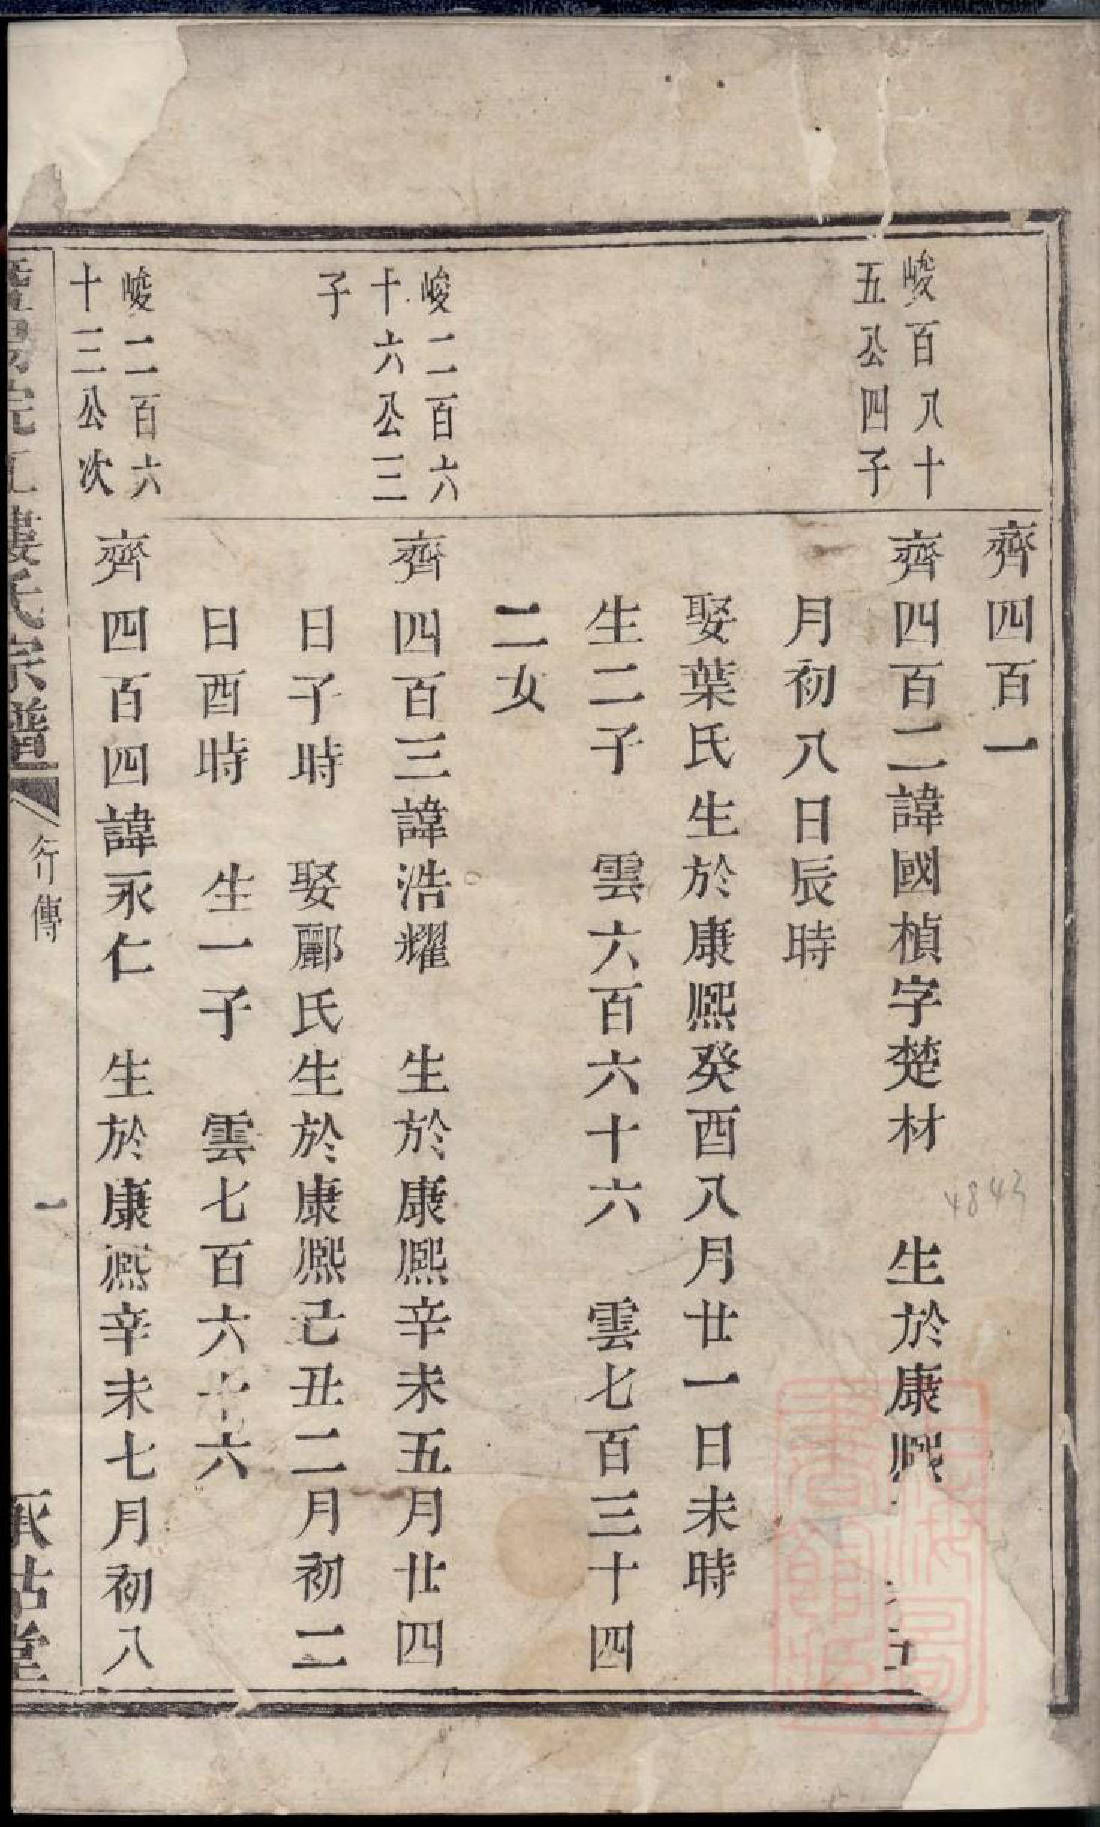 齊四百一
峻百八十
五公四子
齊四百二諱國楨字楚材　生於康熙
月初八日辰時
娶葉氏生於康熙癸酉八月廿一日未時
生二子　雲六百六十六　雲七百三十四
二女
峻二百六
十六公三
子
齊四百三諱浩耀　生於康熙辛未五月廿四
日子時　娶酈氏生於康熙己丑二月初二
日酉時　生一子　雲七百六十六
峻二百六
十三公次
齊四百四諱永仁　生於康熙辛未七月初八
樓氏宗譜
行傳
一
堂
4843